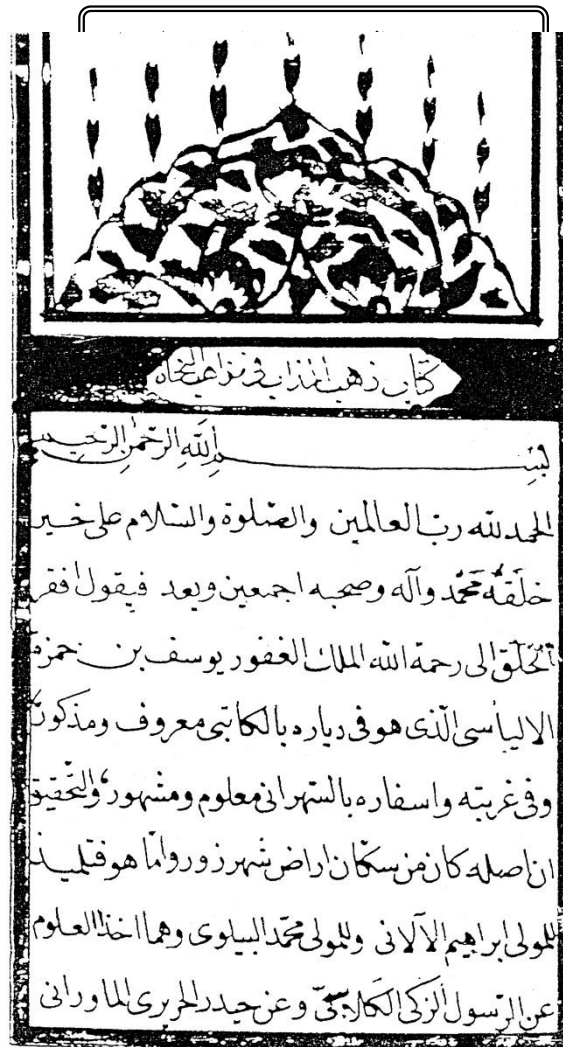 كتاب ذهب المذاب في مذاهب النحاة
بسم الله الرحمن الرحيم
الحمد لله رب العالمين والصلوة والسلام على خير
خلقه محمد وآله وصحبه اجمعين وبعد فيقول افقر
الخلق الى رحمة الله الملك الغفور يوسف بن حمزة
الالياسى الذى هو فى دياره بالكاتبى معروف ومذكور
وفى غربته واسفاره بالسهرانى معلوم ومشهور والتحقيق
ان اصله كان من سكان اراض شهرزور واما هو فتلميذ
للمولى ابراهيم الآلانى وللمولى محمد البيلوى وهما اخذا العلوم
عن الرسول الزكى وعن حيدر الحريرى الماورانى